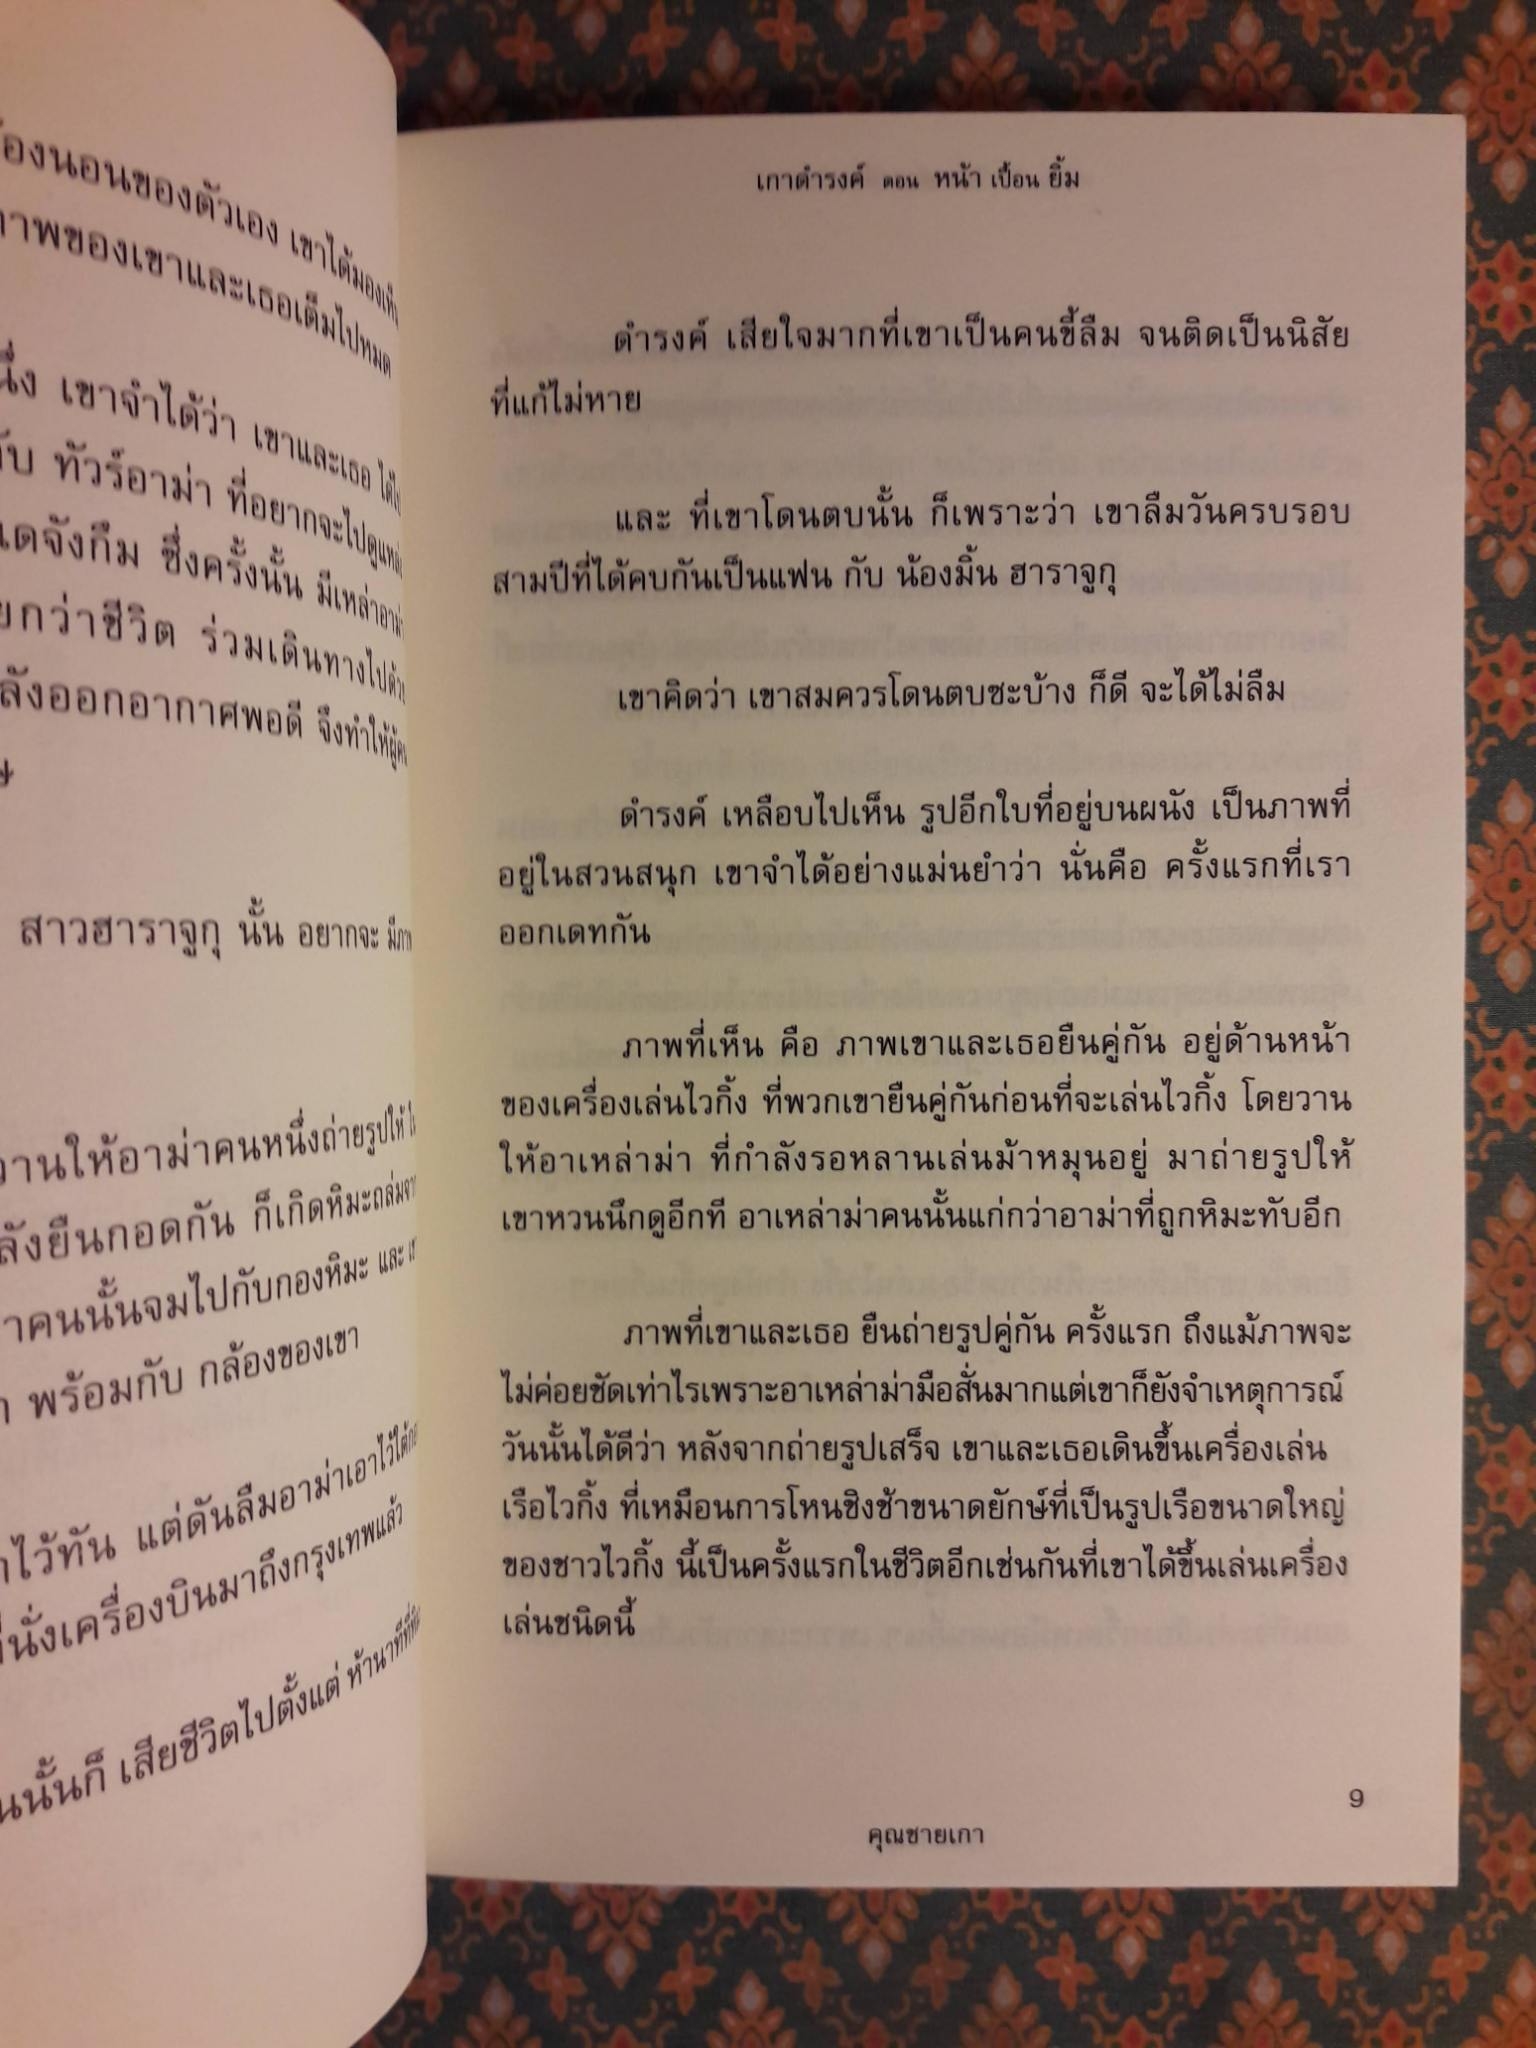 องนอนของตัวเอง เขาได้มองเห็น
ภาพของเขาและเธอเต็มไปหมด
เขาจำได้ว่า เขาและเธอ ได้ไป
ทัวร์อาม่า ที่อยากจะไปดูแหล่ง
แดจังกึม ซึ่งครั้งนั้น มีเหล่าอาม่า
ยกว่าชีวิต ร่วมเดินทางไปด้วย
ลังออกอากาศพอดี จึงทำให้ผู้คน
สาวฮาราจูกุ นั้น อยากจะ มีภาพ
วานให้อาม่าคนหนึ่งถ่ายรูปให้
ลังยืนกอดกัน ก็เกิดหิมะถล่ม
าคนนั้นจมไปกับกองหิมะ และ
พร้อมกับ กล้องของเขา
าไว้ทัน แต่ดันลืมอาม่าเอาไว้ใต้
นั่งเครื่องบินมาถึงกรุงเทพแล้ว
นนั้นก็ เสียชีวิตไปตั้งแต่ ห้านาทีที่
เกาดำรงค์ ตอน หน้า เปื้อน ยิ้ม
ดำรงค์ เสียใจมากที่เขาเป็นคนขี้ลืม จนติดเป็นนิสัย
ที่แก้ไม่หาย
และ ที่เขาโดนตบนั้น ก็เพราะว่า เขาลืมวันครบรอบ
สามปีที่ได้คบกันเป็นแฟน กับ น้องมิ้น ฮาราจูกุ
เขาคิดว่า เขาสมควรโดนตบซะบ้าง ก็ดี จะได้ไม่ลืม
ดำรงค์ เหลือบไปเห็น รูปอีกใบที่อยู่บนผนัง เป็นภาพที่
อยู่ในสวนสนุก เขาจำได้อย่างแม่นยำว่า นั่นคือ ครั้งแรกที่เรา
ออกเดทกัน
ภาพที่เห็น คือ ภาพเขาและเธอยืนคู่กัน อยู่ด้านหน้า
ของเครื่องเล่นไวกิ้ง ที่พวกเขายืนคู่กันก่อนที่จะเล่นไวกิ้ง โดยวาน
ให้อาเหล่าม่า ที่กำลังรอหลานเล่นม้าหมุนอยู่ มาถ่ายรูปให้
เขาหวนนึกดูอีกที อาเหล่าม่าคนนั้นแก่กว่าอาม่าที่ถูกหิมะทับอีก
ภาพที่เขาและเธอ ยืนถ่ายรูปคู่กัน ครั้งแรก ถึงแม้ภาพจะ
ไม่ค่อยชัดเท่าไรเพราะอาเหล่าม่ามือสั่นมากแต่เขาก็ยังจำเหตุการณ์
วันนั้นได้ดีว่า หลังจากถ่ายรูปเสร็จ เขาและเธอเดินขึ้นเครื่องเล่น
เรือไวกิ้ง ที่เหมือนการโหนชิงช้าขนาดยักษ์ที่เป็นรูปเรือขนาดใหญ่
ของชาวไวกิ้ง นี้เป็นครั้งแรกในชีวิตอีกเช่นกันที่เขาได้ขึ้นเล่นเครื่อง
เล่นชนิดนี้
9
คุณชายเกา